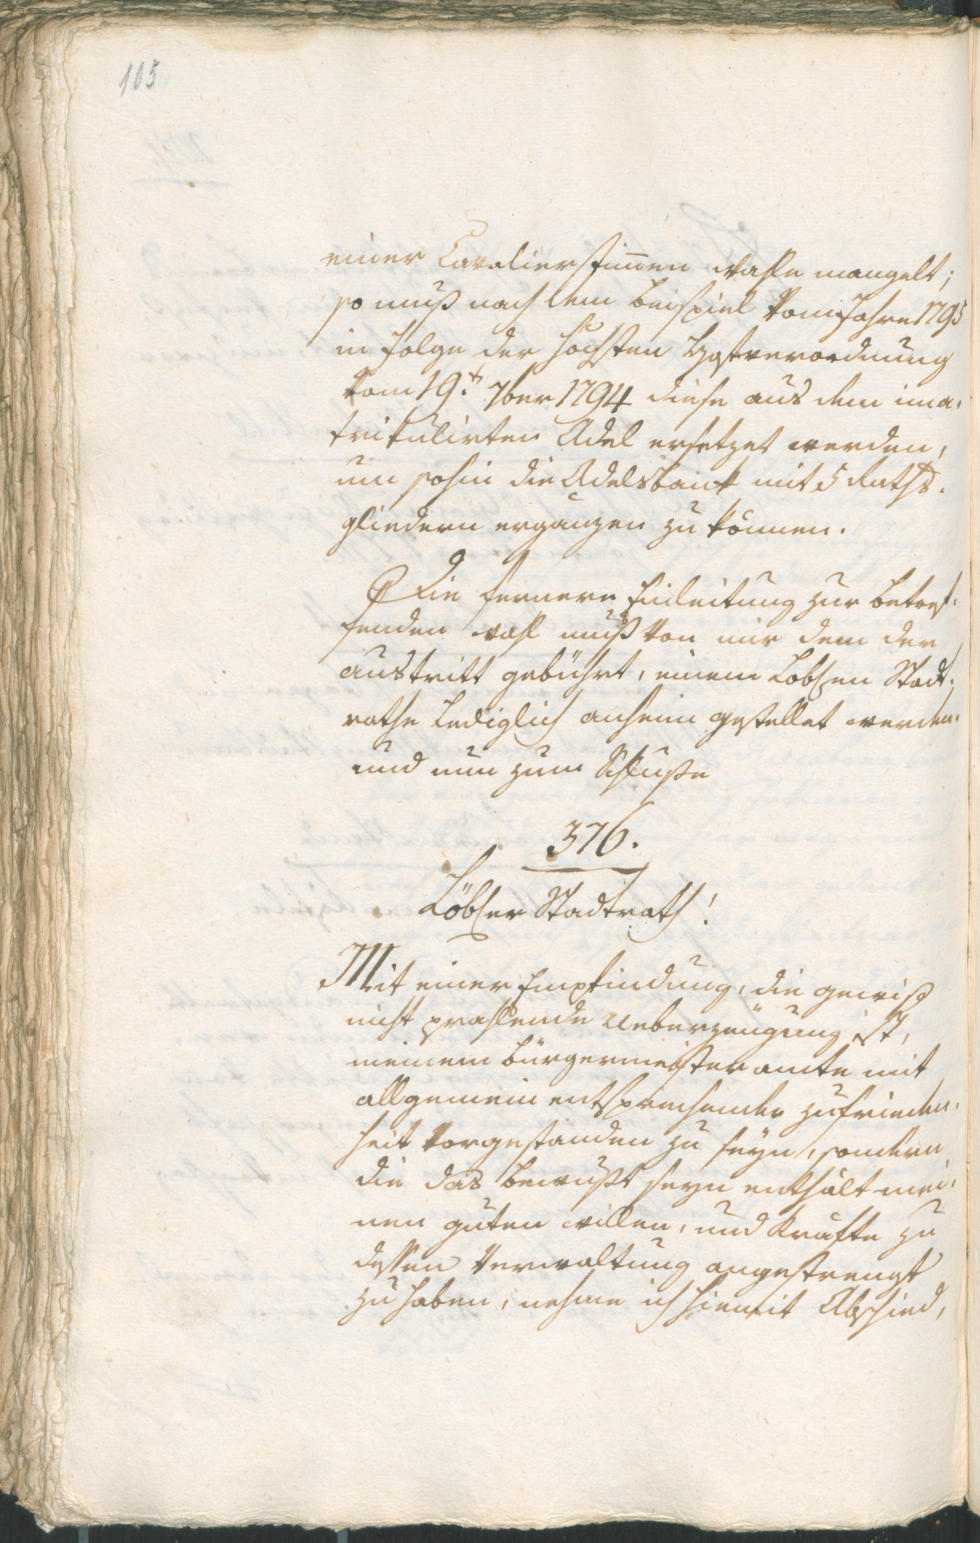 105
einer Cavalierstimmen wahle mangelt;
so muß nach dem beispiel vom Jahre 1795
in folge der höchsten verordnung
vom 19.t 7ber 1794 diese aus dem ima-
trikulirten Adel ersetzet werden,
um sohin die Adelsbank mit 5 Raths-
gliedern ergänzen zu können.
Die fernere Einleitung zur betref-
fenden wahl muß von mir dem der
austritt gebührt, einem Löbchen Stadt-
rathe lediglich anheim gestellet werden.
und nun zum Schluße
376.
Löbcher Stadtrath!
Mit einer Empfindung, die gewiß
nicht prahlende Ueberzeugung ist,
meinem bürgermeisteramte mit
allgemein entsprechender zufrieden-
heit vorgestanden zu seyn, sondern
die das bewußt seyn enthält mei-
nen guten willen, und kräfte zu
dessen Verwaltung angestrengt
zu haben, nehme ich hiemit Abschied,